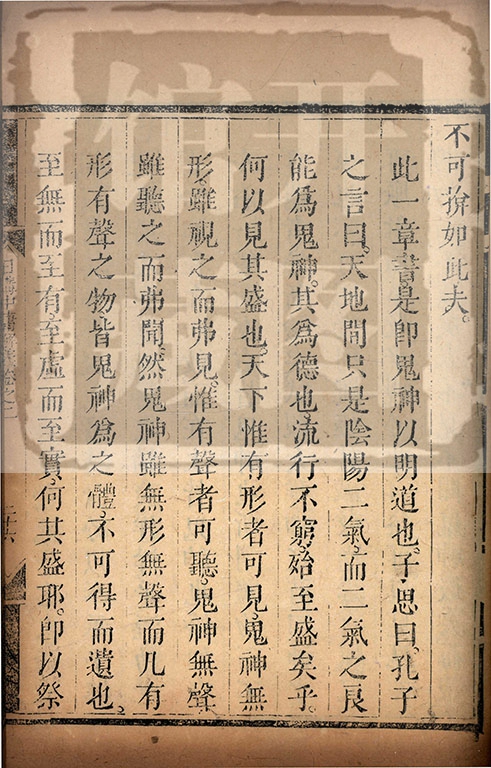 不可揜如此夫。
此一章書。是卽鬼神以明道也。子思曰。孔子
之言曰。天地間只是陰陽二氣。而二氣之良
能爲鬼神。其爲德也。流行不窮。始至盛矣乎。
何以見其盛也。天下惟有形者可見。鬼神無
形。雖視之而弗見。惟有聲者可聽。鬼神無聲
雖聽之而弗聞。然鬼神雖無形無聲。而凡有
形有聲之物。皆鬼神爲之體。不可得而遺也。
至無而至有。至虛而至實。何其盛耶。卽以祭